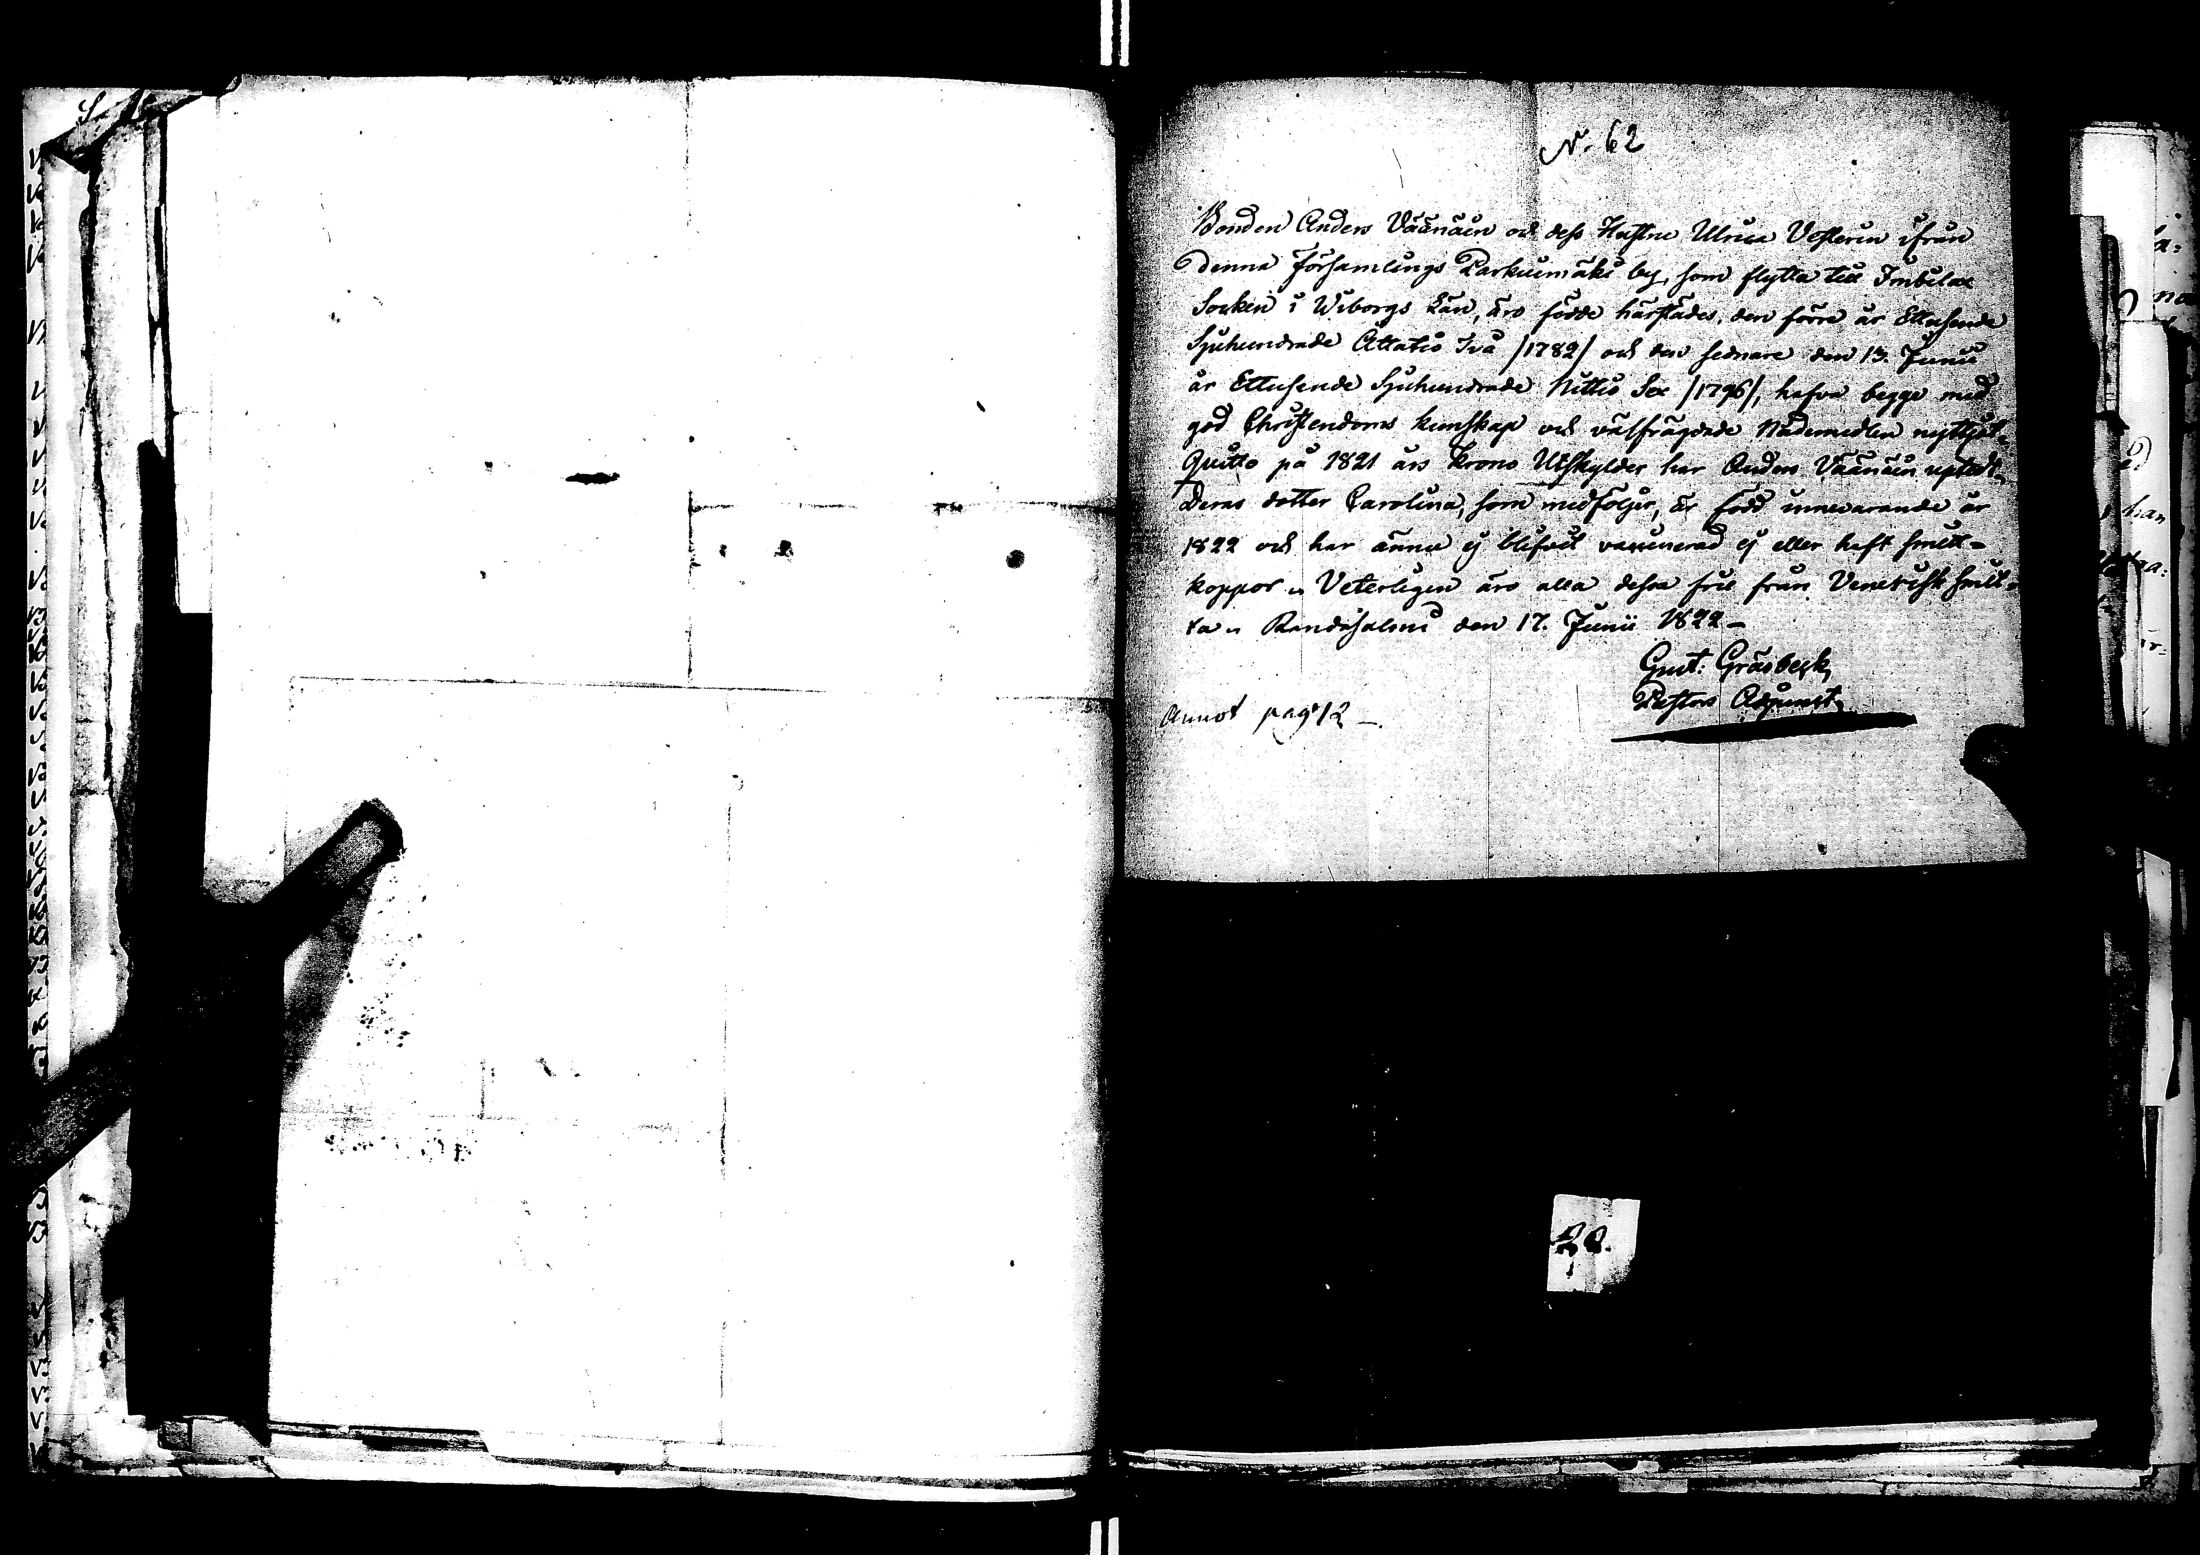 No. 62
Bonden Anders Väänäin och dess Hustru Ulrica Vesterin ifrån
denna församlings Parkuimäki by, som flytta till Imbilax
Socken i Wiborgs Län, äro födde härstädes, den förre år Ettusende
Sjuhundrade Åttatio Två /1782/ och den sednare den 13. Junii
år Ettusende Sjuhundrade Nittio Sex /1796/, hafva begge med
god Christendoms kunskap och välfrägdade Nådemedlen nyttjat.
Quitto på 1821 års Krono Utskylder har Anders Väänäin uptedt.
Deras dotter Carolina, som medföljer, är född innevarande år
1822 och har ännu ej blifvit vaccinerad ej eller haft smitt-
koppor. Veterligen äro alla dessa frie från Venerisk smit-
ta. Randasalmi den 17. Junii 1822 -
Gust: Gråsbeck,
Pastors Adjunct.
Annot pag: 12 -.
22.
han